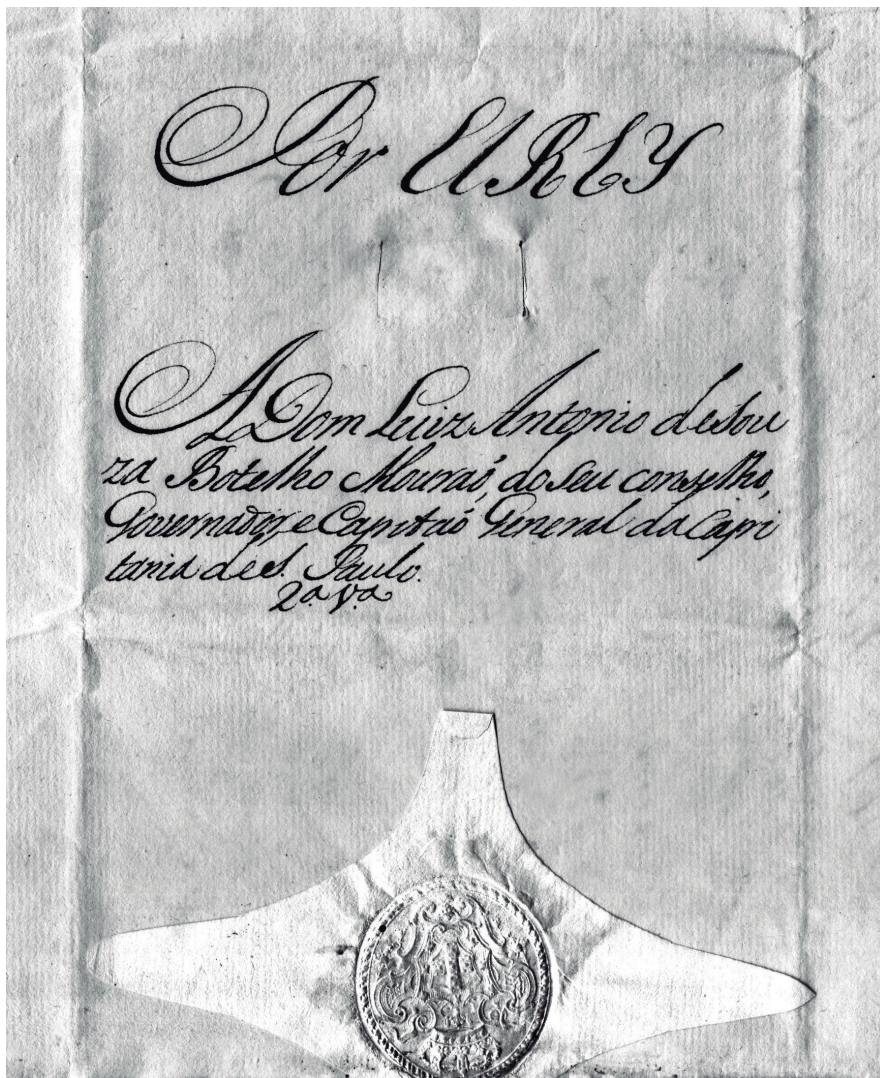 Por ElREY
A Dom Luiz Antonio de Sou
za Botelho Mouraõ, do seu conselho,
Governador, e Capitaõ General da Capi
tania de S. Paulo.
2.ª v.ª